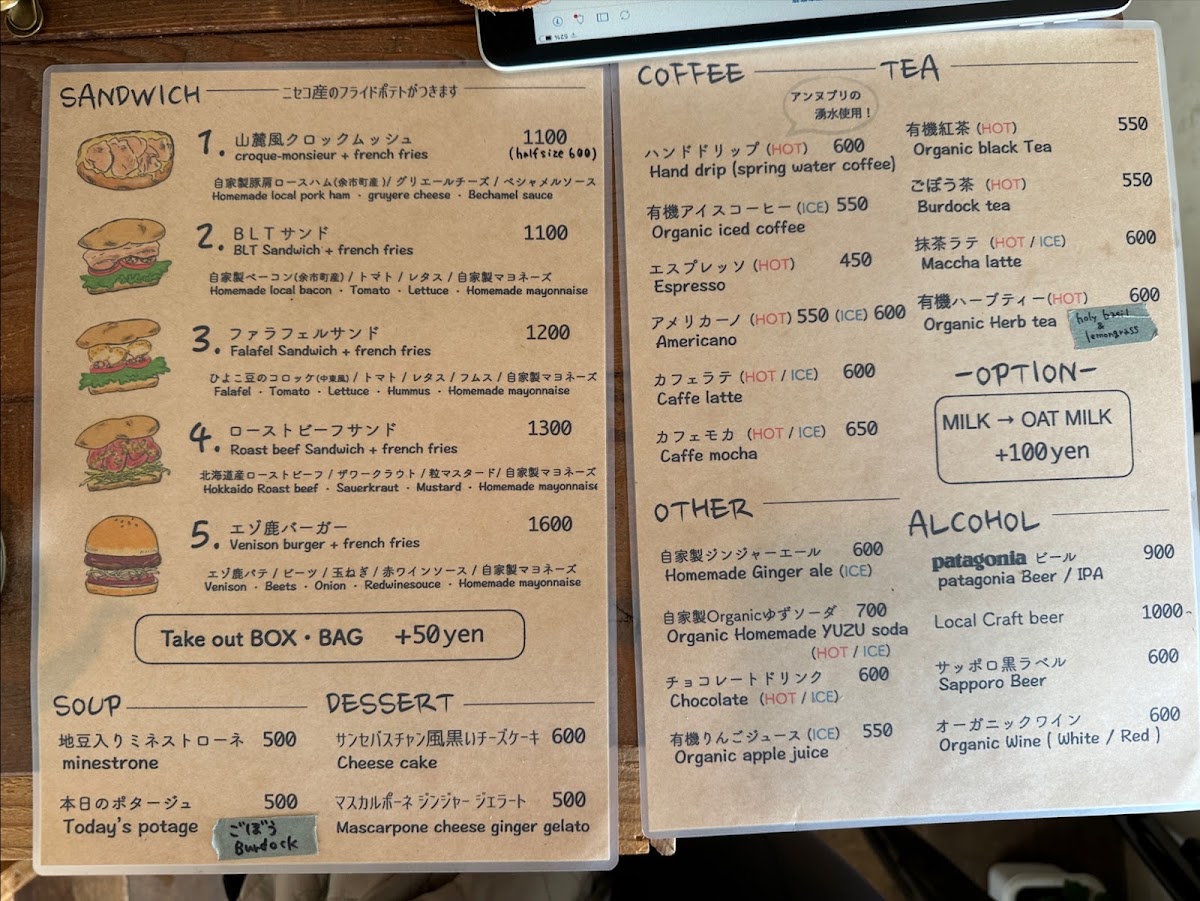 SANDWICH ニセコ産のフライドポテトがつきます
1. 山麓風クロックムッシュ 1100
croque-monsieur + french fries (half size 600)
自家製豚肩ロースハム(余市町産)/ グリエールチーズ / ベシャメルソース
Homemade local pork ham ・ gruyere cheese ・ Bechamel sauce
2. BLTサンド 1100
BLT Sandwich + french fries
自家製ベーコン(余市町産) / トマト / レタス / 自家製マヨネーズ
Homemade local bacon ・ Tomato ・ Lettuce ・ Homemade mayonnaise
3. ファラフェルサンド 1200
Falafel Sandwich + french fries
ひよこ豆のコロッケ(中東風) / トマト / レタス / フムス / 自家製マヨネーズ
Falafel ・ Tomato ・ Lettuce ・ Hummus ・ Homemade mayonnaise
4. ローストビーフサンド 1300
Roast beef Sandwich + french fries
北海道産ローストビーフ / ザワークラウト / 粒マスタード/ 自家製マヨネーズ
Hokkaido Roast beef ・ Sauerkraut ・ Mustard ・ Homemade mayonnaise
5. エゾ鹿バーガー 1600
Venison burger + french fries
エゾ鹿パテ / ビーツ / 玉ねぎ / 赤ワインソース / 自家製マヨネーズ
Venison ・ Beets ・ Onion ・ Redwinesouce ・ Homemade mayonnaise
Take out BOX・BAG +50yen
SOUP
地豆入りミネストローネ 500
minestrone
本日のポタージュ 500
Today's potage
ごぼう
Burdock
DESSERT
サンセバスチャン風黒いチーズケーキ 600
Cheese cake
マスカルポーネ ジンジャー ジェラート 500
Mascarpone cheese ginger gelato
COFFEE
アンヌプリの
湧水使用！
ハンドドリップ (HOT) 600
Hand drip (spring water coffee)
有機アイスコーヒー (ICE) 550
Organic iced coffee
エスプレッソ (HOT) 450
Espresso
アメリカーノ (HOT) 550 (ICE) 600
Americano
カフェラテ (HOT / ICE) 600
Caffe latte
カフェモカ (HOT / ICE) 650
Caffe mocha
TEA
有機紅茶 (HOT) 550
Organic black Tea
ごぼう茶 (HOT) 550
Burdock tea
抹茶ラテ (HOT / ICE) 600
Maccha latte
有機ハーブティー(HOT) 600
Organic Herb tea
holy basil
&
lemongrass
-OPTION-
MILK → OAT MILK
+100yen
OTHER
自家製ジンジャーエール 600
Homemade Ginger ale (ICE)
自家製Organicゆずソーダ 700
Organic Homemade YUZU soda
(HOT / ICE)
チョコレートドリンク 600
Chocolate (HOT / ICE)
有機りんごジュース (ICE) 550
Organic apple juice
ALCOHOL
patagonia ビール 900
patagonia Beer / IPA
Local Craft beer 1000~
サッポロ黒ラベル 600
Sapporo Beer
オーガニックワイン 600
Organic Wine ( White / Red )